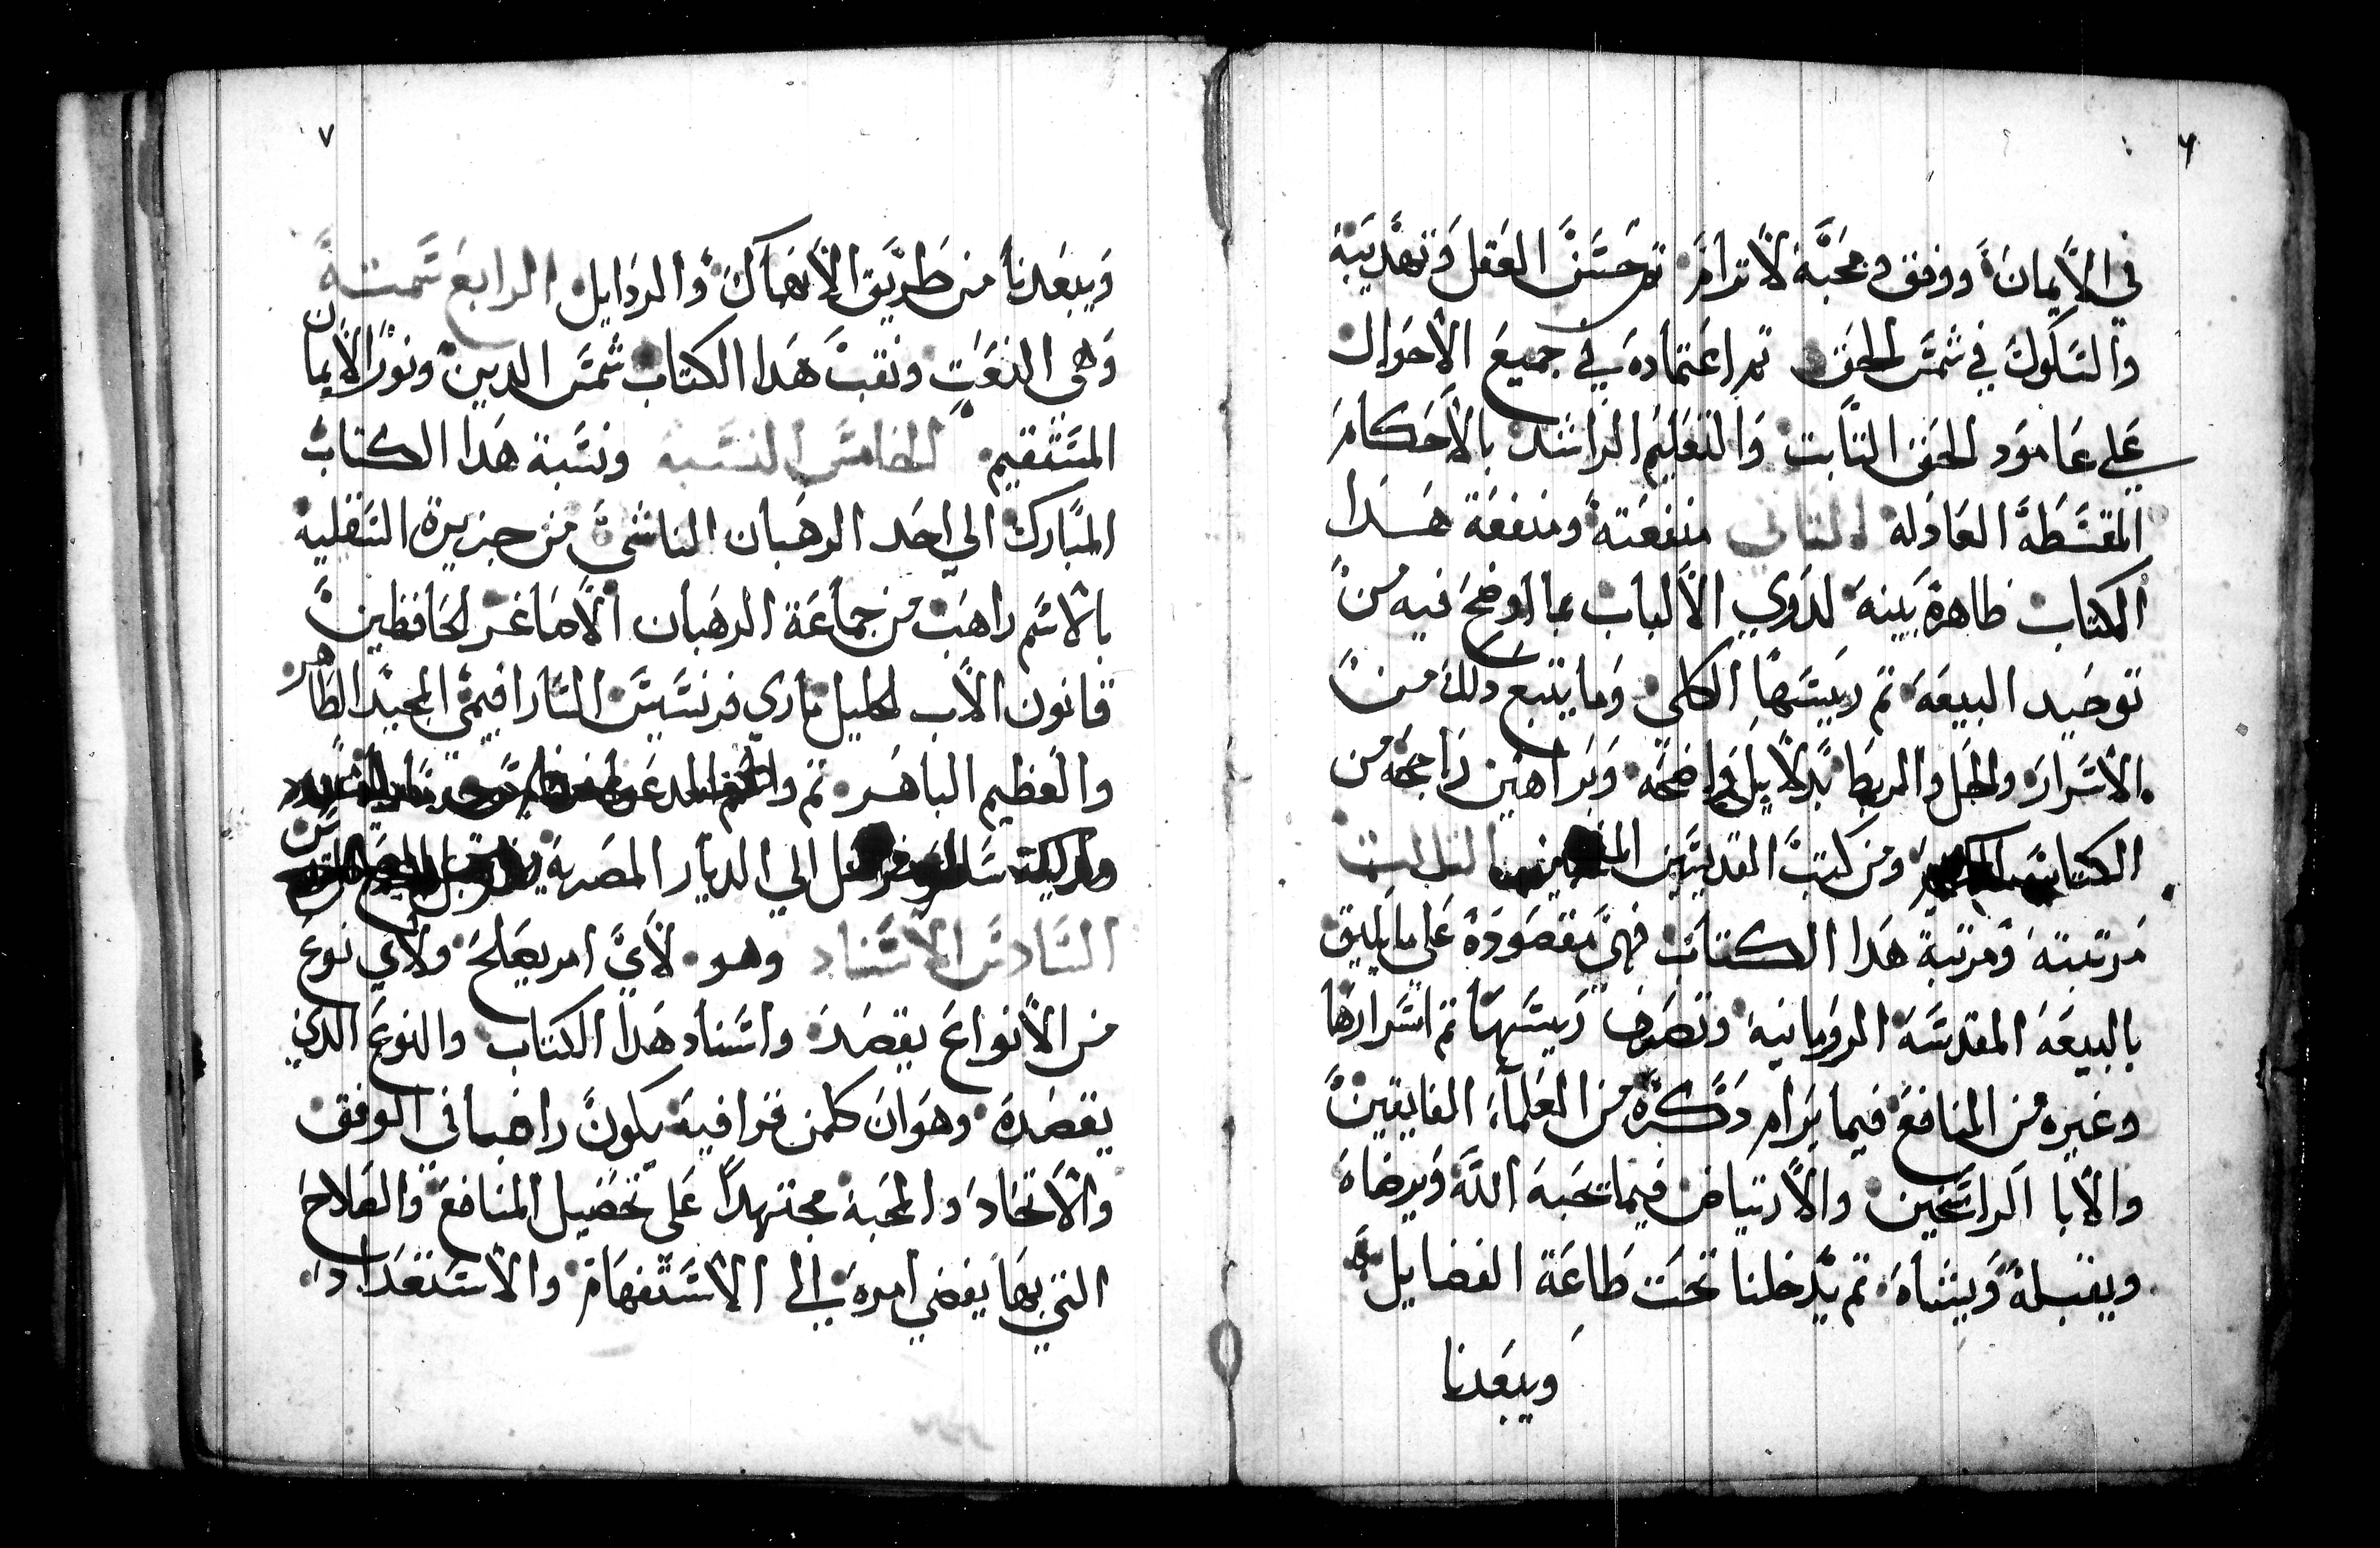 ٦
في الإيمان ووفق ومحبة لا ترام ثم حسن العقل وتهديبه
والسلوك في شمس الحق ثم اعتماده في جميع الاحوال
على عامود الحق التابت والتعليم الراشد بالاحكام
المقسطة العادله التاني منفعته ومنفعة هدا
الكتاب ظاهرة بينه لدوي الألباب بما اوضح فيه من
توحيد البيعه تم رييسها الكلي وما يتبع دلك من
الاسرار والحل والربط بدلايل واضحه وبراهين راجحه من
الكتاب ومن كتب القديسين التالت
مرتبته ومرتبة هدا الكتاب فهي مقصوده على ما يليق
بالبيعه المقدسه الرومانيه وتصرف رييسها تم اسرارها
وغيره من المنافع فيما يرام دكره من العلماء الفايقين
والابا الراسخين والارتياض فيما تحبه الله ويرضاه
ويقبله ويشاه تم يدخلنا تحت طاعة الفضايل
ويبعدنا
٧
ويبعدنا من طريق الانهماك والردايل الرابع سمته
وهى النعت ونقب هدا الكتاب شمس الدين ونور الإيمان
المستقيم الخامس النسبه ونسبة هدا الكتاب
المبارك الي احد الرهبان الناشئ من جزيرة السقليه
بالاسم راهب من جماعة الرهبان الاصاغر الحافظين
قانون الاب الجليل ماري فرنسيس السارافيمي المجيد الطاهر
والعظيم الباهر تم
الي الديار المصرية
السادس الاسناد وهو لأي امر يصلح ولاي نوع
من الأنواع يقصد واسناد هدا الكتاب والنوع الدي
يقصده وهو ان كلمن قرا فيه يكون راضيا في الوفق
والاتحاد والمحبه مجتهدا على تحضيل المنافع والصلاح
التي بها يفضي امره الي الاستفهام والاستعداد